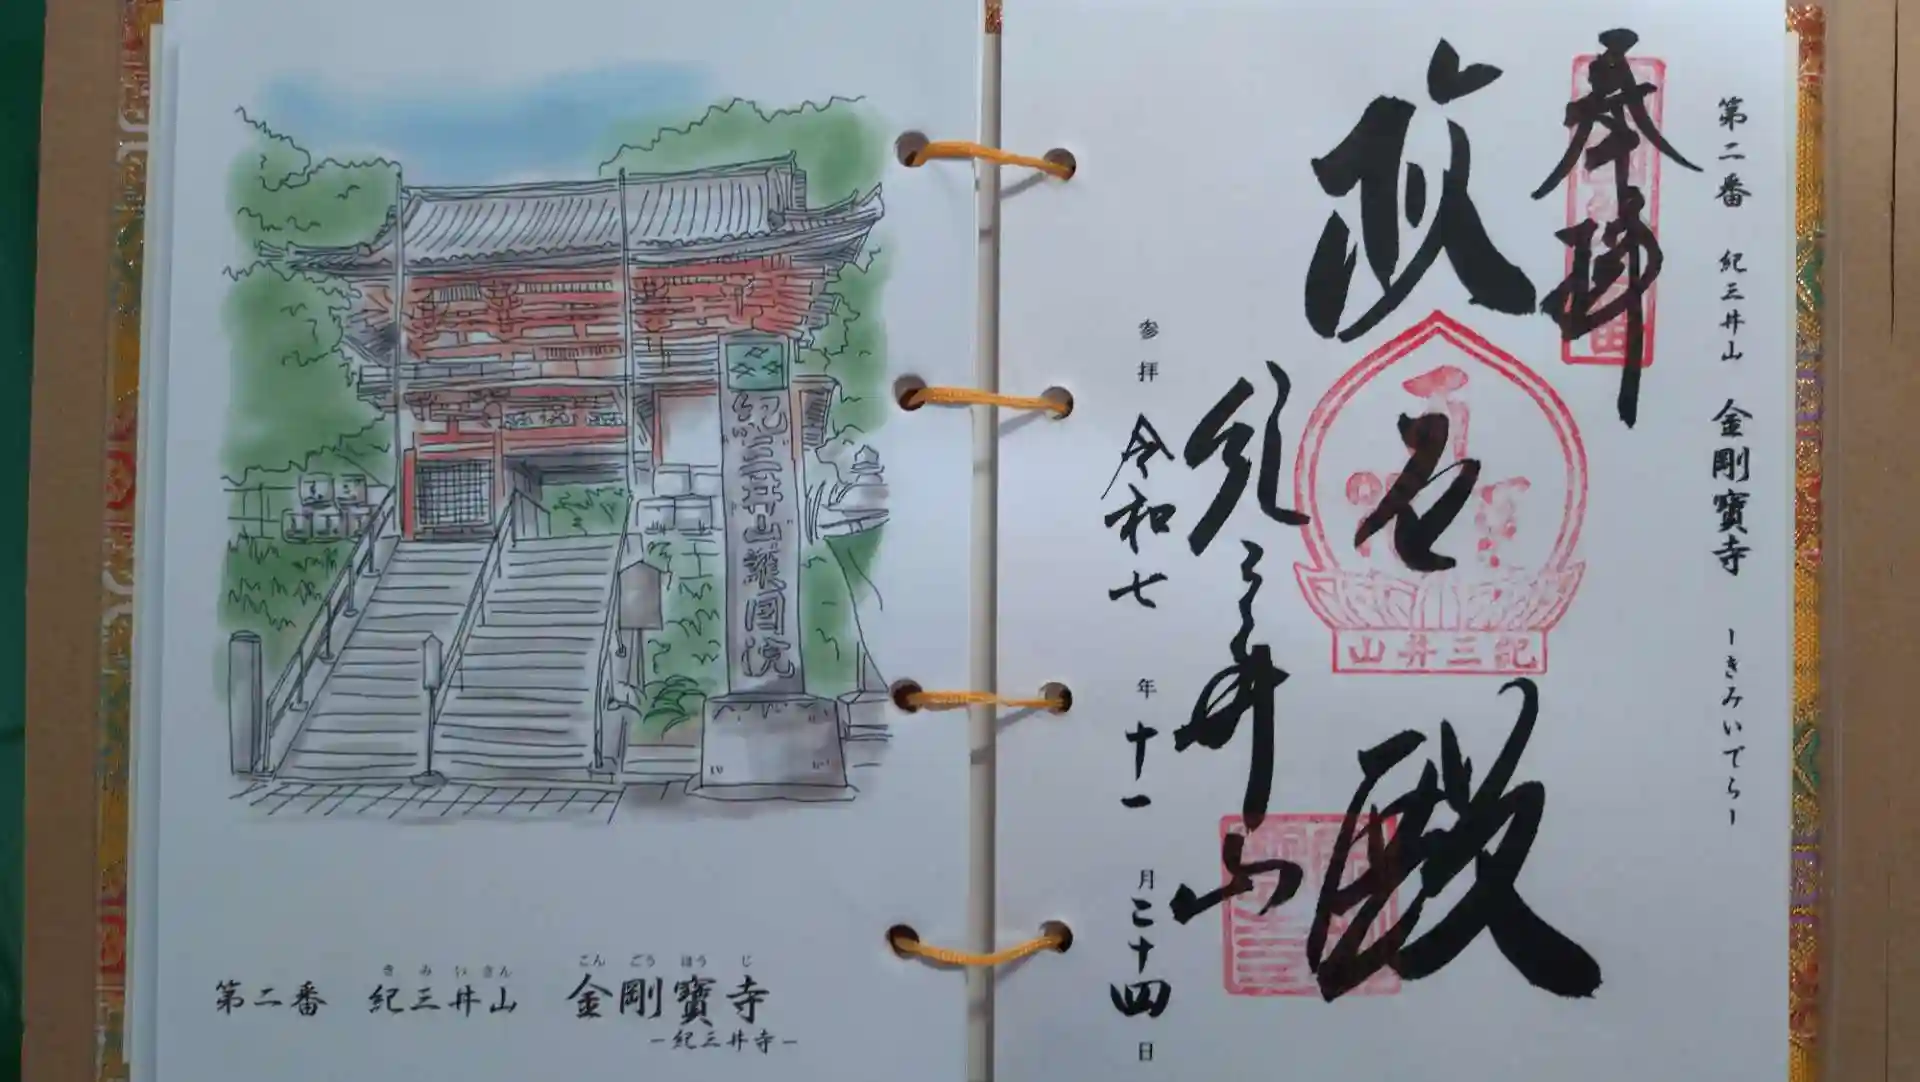 紀三井山護国院
第二番 紀三井山 金剛寶寺
きみいさん こんごうほうじ
-紀三井寺-
第二番 紀三井山 金剛寶寺 -きみいでら-
奉拝
救世殿
紀三井山
紀三井山
参拝 令和七年十一月二十四日